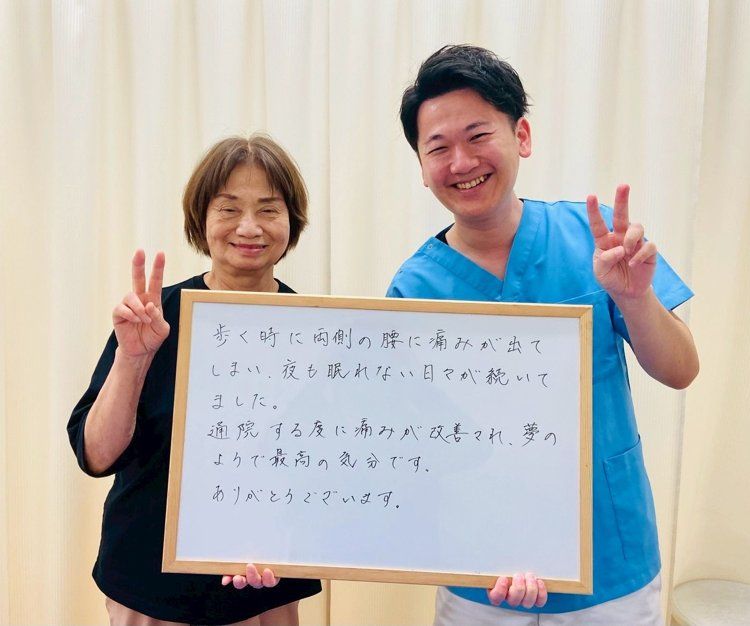 歩く時に両側の腰に痛みが出て
しまい、夜も眠れない日々が続いて
ました。
通院する度に痛みが改善され、夢の
ようで最高の気分です。
ありがとうございます。